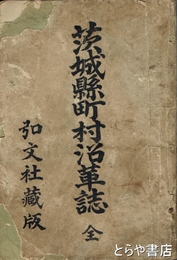 茨城縣町村沿革誌 全
弘文社藏版
とらや書店